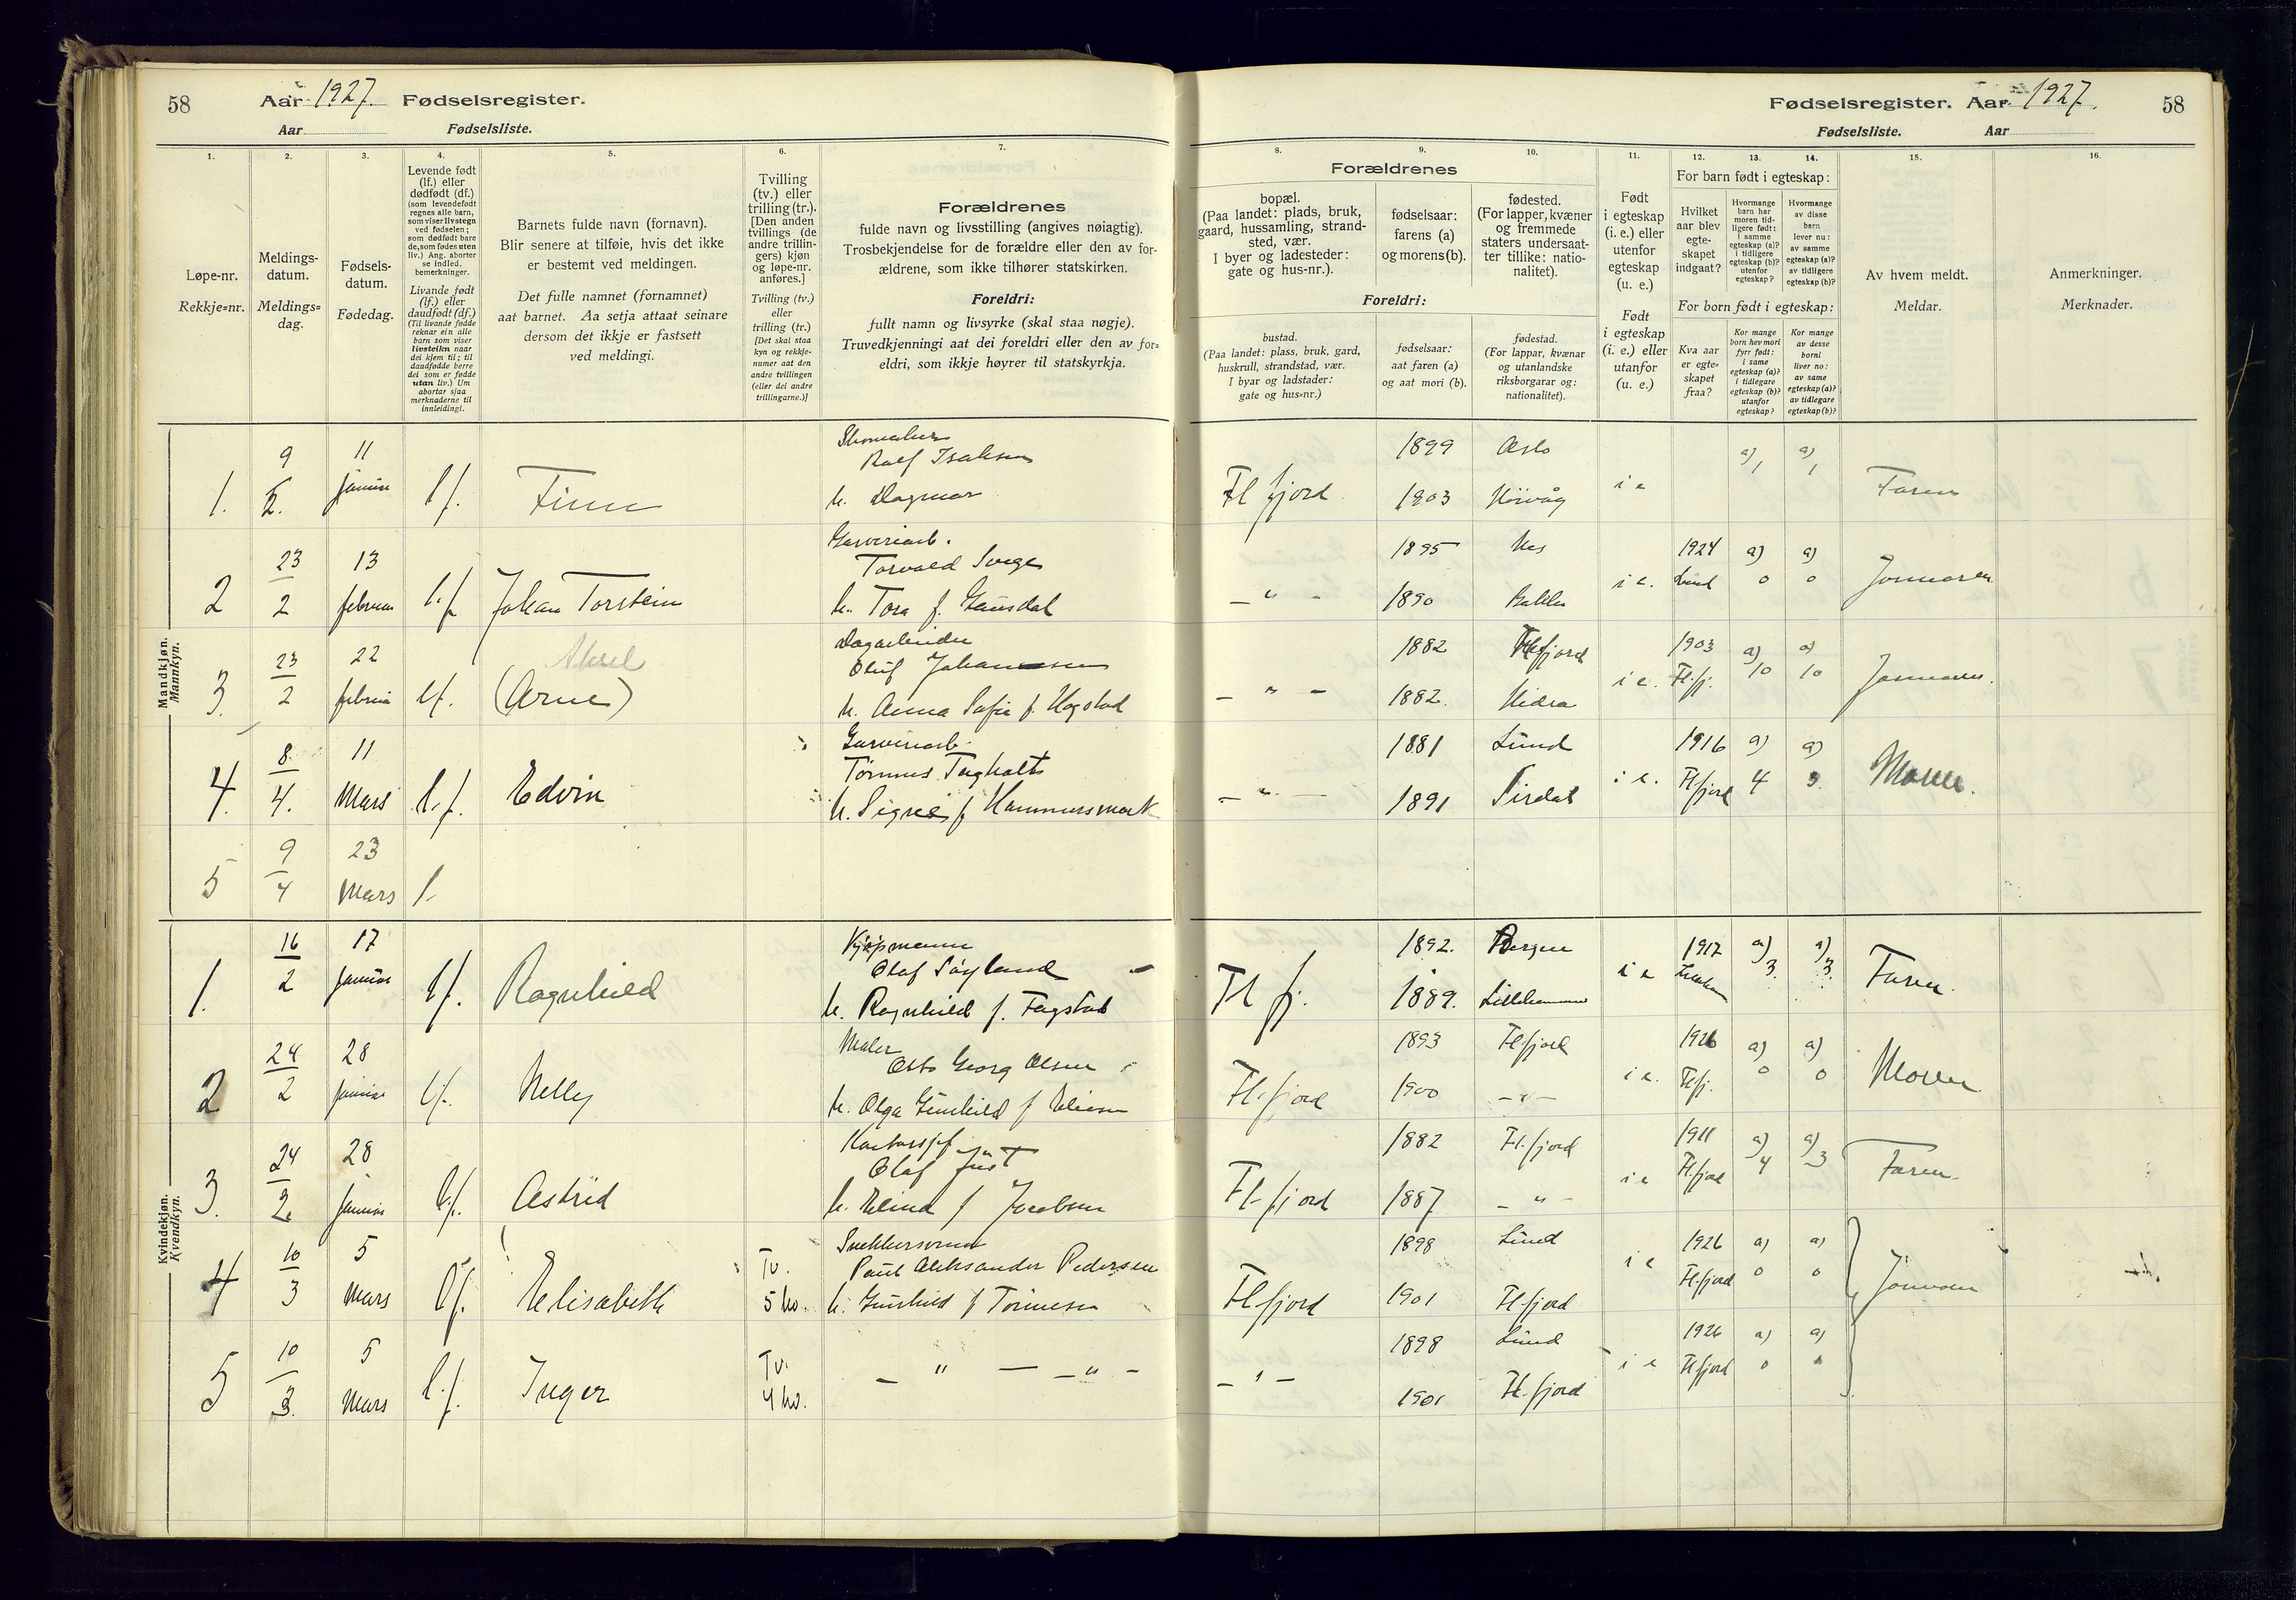 58
Aar 1927. Fødselsregister.
Aar
Fødselsliste.
Fødselsregister. Aar 1927.
58
Fødselsliste.
Aar
1.
2.
3.
4.
5.
6.
7.
8.
9.
10.
11.
12.
13.
14.
15.
16.
Løpe-nr.
Rekkje=nr.
Meldings-
datum.
Meldings=
dag.
Fødsels-
datum.
Fødedag.
Levende født
(lf.) eller
dødfødt (df.)
(som levendefødt
regnes alle barn,
som viser livstegn
ved fødselen;
som dødfødt bare
de, som fødes uten
liv.) Ang. aborter
se indled.
bemerkninger.
Livande født
(lf.) eller
daudfødt (df.)
(Til livande fødde
reknar ein alle
barn som viser
livsteikn naar
dei kjem til; til
daudfødde berre
dei som er fødde
utan liv.) Um
abortar sjaa
merknaderne til
innleidingi.
Barnets fulde navn (fornavn).
Blir senere at tilføie, hvis det ikke
er bestemt ved meldingen.
Det fulle namnet (fornamnet)
aat barnet. Aa setja attaat seinare
dersom det ikkje er fastsett
ved meldingi.
Tvilling
(tv.) eller
trilling (tr.).
[Den anden
tvillings (de
andre trillin-
gers) kjøn
og løpe-nr.
anføres.]
Tvilling (tv.)
eller
trilling (tr.)
[Det skal staa
kyn og rekkje-
numer aat den
andre tvillingen
(eller dei andre
trillingarne.)]
Forældrenes
fulde navn og livsstilling (angives nøiagtig).
Trosbekjendelse for de forældre eller den av for-
ældrene, som ikke tilhører statskirken.
Foreldri:
fullt namn og livsyrke (skal staa nøgje).
Truvedkjenningi aat dei foreldri eller den av for=
eldri, som ikkje høyrer til statskyrkja.
Forældrenes
bopæl.
(Paa landet: plads, bruk,
gaard, hussamling, strand-
sted, vær.
I byer og ladesteder:
gate og hus-nr.).
fødselsaar:
farens (a)
og morens (b).
fødested.
(For lapper, kvæner
og fremmede
staters undersaat-
ter tillike: natio-
nalitet).
Foreldri:
bustad.
(Paa landet: plass, bruk, gard,
huskrull, strandstad, vær.
I byar og ladstader:
gate og hus=nr.)
fødselsaar:
aat faren (a)
og aat mori (b).
fødestad.
(For lappar, kvænar
og utanlandske
riksborgarar og:
nationalitet).
Født
i egteskap
(i. e.) eller
utenfor
egteskap
(u. e.)
Født
i egteskap
(i. e.) eller
utanfor
(u. e.)
For barn født i egteskap:
Hvilket
aar blev
egte-
skapet
indgaat?
Hvormange
barn har
moren tid-
ligere født:
i samme
egteskap (a)?
i tidligere
egteskap (b)?
utenfor
egteskap?
Hvormange
av disse
barn
lever nu:
av samme
egteskap (a)?
av tidligere
egteskap (b)?
For born født i egteskap:
Kva aar
er egte-
skapet
fraa?
Kor mange
born hev mori
fyrr født:
i same
egteskap (a)?
i tidlegare
egteskap (b)?
utanfor
egteskap?
Kor mange
av desse
borni
liver no:
av same
egteskap (a)?
av tidlegare
egteskap (b)?
Av hvem meldt.
Meldar.
Anmerkninger.
Merknader.
Mandkjøn.
Mannkyn.
1. 9/2. 11 januar l.f. Finn
Ralf Isaksen
h. Dagmar
Fl fjord 1899 Oslo
1903 i e a) 1 a) 1 Faren
2 23/2 13 februar l.f. Johan Torstein
Garveriarb.
Torvald
h. Tora f.
– " – 1895 Nes
1890 Bakke i e. 1924 Lund a) 0 a) 0 Jormoren
3. 23/2 22 februar l.f. Aksel
(Arne)
Dagarbeider
Oluf Johannessen
h. Anna Sofie f. Hogstad
– " – 1882 Fl.fjord
1882. Hidra i e. 1903 Fl.fj. a) 10 a) 10 Jormoren.
4. 8/4. 11 Mars l.f. Edvin
Garveriarb.
h. Signe f Hammersmark
– " – 1881 Lund
1891 Sirdal i e. 1916 Fl.fjord a) 4 a) 3. Moren.
5 9/4 23 Mars l.
Kvindekjøn.
Kvendkyn.
1. 16/2 17 januar l.f. Ragnhild
Kjøpmann
Olaf Søyland
h. Ragnhild f. Fagstad
Fl fj. 1892. Bergen
1889. Lillehammer i e 1917 a) 3. a) 3. Faren.
2 24/2 28 januar l.f. Nelly
Maler
Otto Georg Olsen
h. Olga Gunhild f
Fl.fjord 1893 Fl.fjord
1900 – " – i e. 1926 Fl.fj. a) 0 a) 0 Moren
3. 24/2 28 januar l.f. Astrid
Olaf Just
h. f Jacobsen
Fl.fjord 1882 Fl.fjord
1887 – " – i e 1911 Fl.fjord a) 4 a) 3 Faren.
4 10/3 5 Mars l.f. Elisabeth Tv. 5 kv.
Snekkersvenn
Paul Aleksander Pedersen
h. Gunhild f Tønnesen
Fl.fjord 1898 Lund
1901 Fl.fjord i e 1926 Fl.fjord a) 0 a) 0 Jormoren
5 10/3. 5 Mars l.f. Inger Tv. 4 kv.
– " – – " –
– " – 1898 Lund
1901 Fl.fjord i e 1926 Fl.fjord a) 0 a) 0